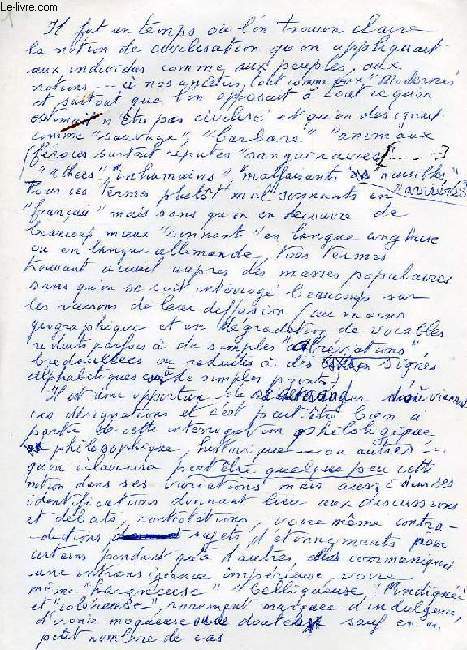 Le-livre.com
Il fut un temps où l'on trouva claire
la notion de civilisation qu'on appliquait
aux individus comme aux peuples, aux
nations -- à nos ancêtres tout comme aux "Modernes"
et surtout que l'on opposait à tout ce qu'on
n'être pas civilisé et qu'on désignait
comme "sauvage", "barbare" "animaux
féroces surtout réputés sanguinaires [.....]
"inhumains", "malfaisants" "nuisibles"
Tous ces termes plutôt mal sonnants en
"français" mais sans qu'on en découvre de
beaucoup mieux "sonnants" en langue anglaise
ou en langue allemande, tous termes
trouvant accueil auprès des masses populaires
sans qu'on se soit interrogé beaucoup sur
les raisons de leur diffusion
géographique et en dégradation de vocables
réduits parfois à de simples "abréviations",
bredouillées ou réduites à des signes
alphabétiques de simples
Il est donc opportun de se demander d'où viennent
ces désignations et c'est peut-être bien à
partir de cette interrogation philologique
philosophique, historique --- ou autres ---
qu'on éclairera peut être quelque peu cette
notion dans ses variations mais aussi diverses
identifications donnant lieu aux discussions
et débats, contestations, voire même contra-
dictions sujets d'étonnements pour
certains pendant qu'à d'autres, communiquer
une intransigeance impérieuse voire
même "hargneuse" "belliqueuse" "indignée"
et "coléreuse", rarement marquée d'indulgence,
d'ironie moqueuse ou de doute sauf en un
petit nombre de cas